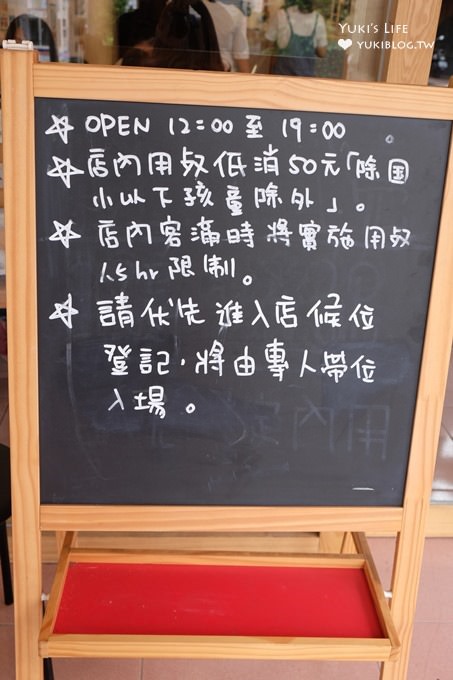 YUKI'S LIFE
YUKIBLOG.TW
☆ OPEN 12:00 至 19:00
☆ 店內用餐低消50元「除国
小以下孩童除外」。
☆ 店內客滿時將實施用餐
1.5hr限制。
☆ 請优先進入店候位
登記,將由專人帶位
入場。